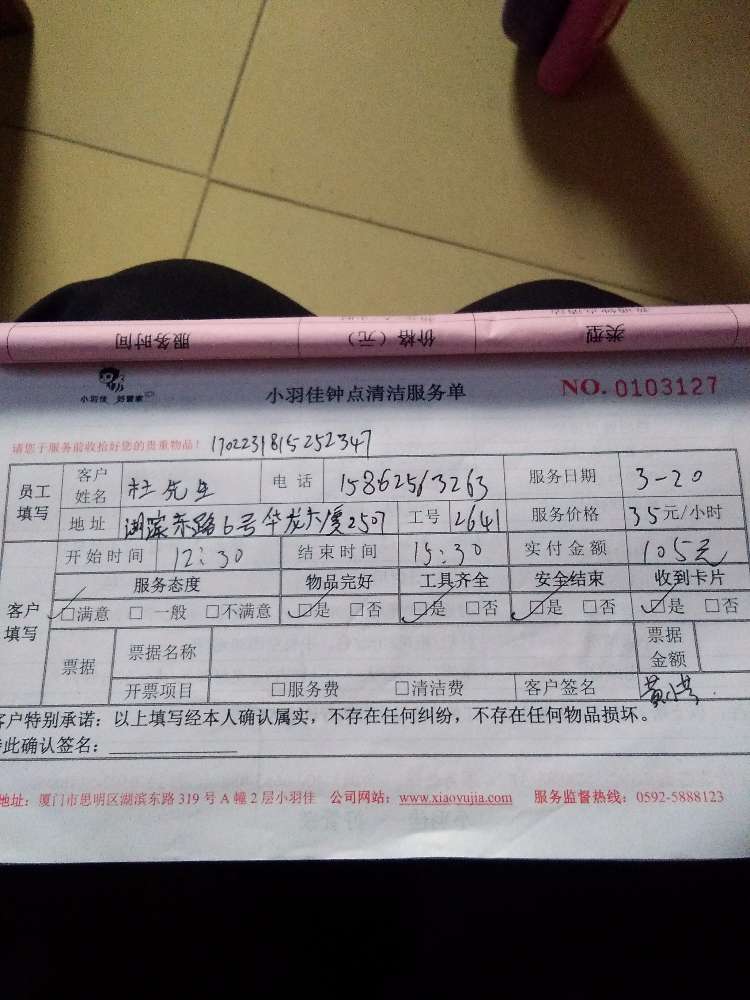 服务时间 价格（元） 类型
小羽佳 好管家
小羽佳钟点清洁服务单 NO. 0103127
请您于服务前收拾好您的贵重物品！ 1702231815252347
员工填写 客户姓名 杜先生 电话 15862563263 服务日期 3-20
地址 湖滨东路6号华龙大厦2507 工号 2641 服务价格 35元/小时
客户填写 开始时间 12:30 结束时间 15:30 实付金额 105元
服务态度 物品完好 工具齐全 安全结束 收到卡片
□满意 □一般 □不满意 □是 □否 □是 □否 □是 □否 □是 □否
票据 票据名称 票据金额
开票项目 □服务费 □清洁费 客户签名
客户特别承诺：以上填写经本人确认属实，不存在任何纠纷，不存在任何物品损坏。
特此确认签名：
地址：厦门市思明区湖滨东路 319 号 A 幢 2 层小羽佳 公司网站：www.xiaoyujia.com 服务监督热线：0592-5888123